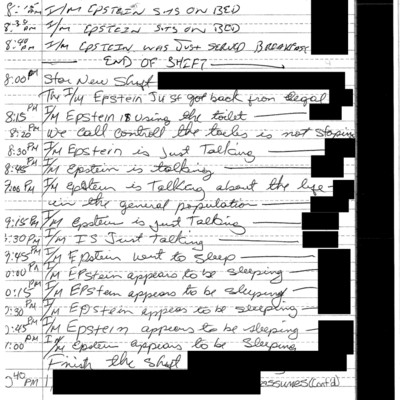 8:15 AM I/M EPSTEIN SITS ON BED
8:30 AM I/M EPSTEIN SITS ON BED
8:40 AM I/M EPSTEIN WAS JUST SERVED BREAKFAST
END OF SHIFT
8:00 PM Star New Shift
The I/M Epstein Just got back from legal
8:15 PM I/M Epstein is using the toilet
8:20 We call controll the toilet is not stoping
8:30 PM I/M Epstein is Just Talking
8:45 PM I/M Epstein is talking
9:00 PM I/M epstein is Talking about the life
in the general population
9:15 PM I/M Epstein is just Talking
9:30 PM I/M IS Just talking
9:45 PM I/M Epstein went to sleep
0:00 PM I/M Epstein appears to be sleeping
0:15 PM I/M EPStein appears to be sleeping
0:30 PM I/M Epstein appears to be sleeping
0:45 PM I/M Epstein appears to be sleeping
1:00 PM I/M Epstein appears to be sleeping
Finish the Shift
0:40 PM assumes (Cont'd)